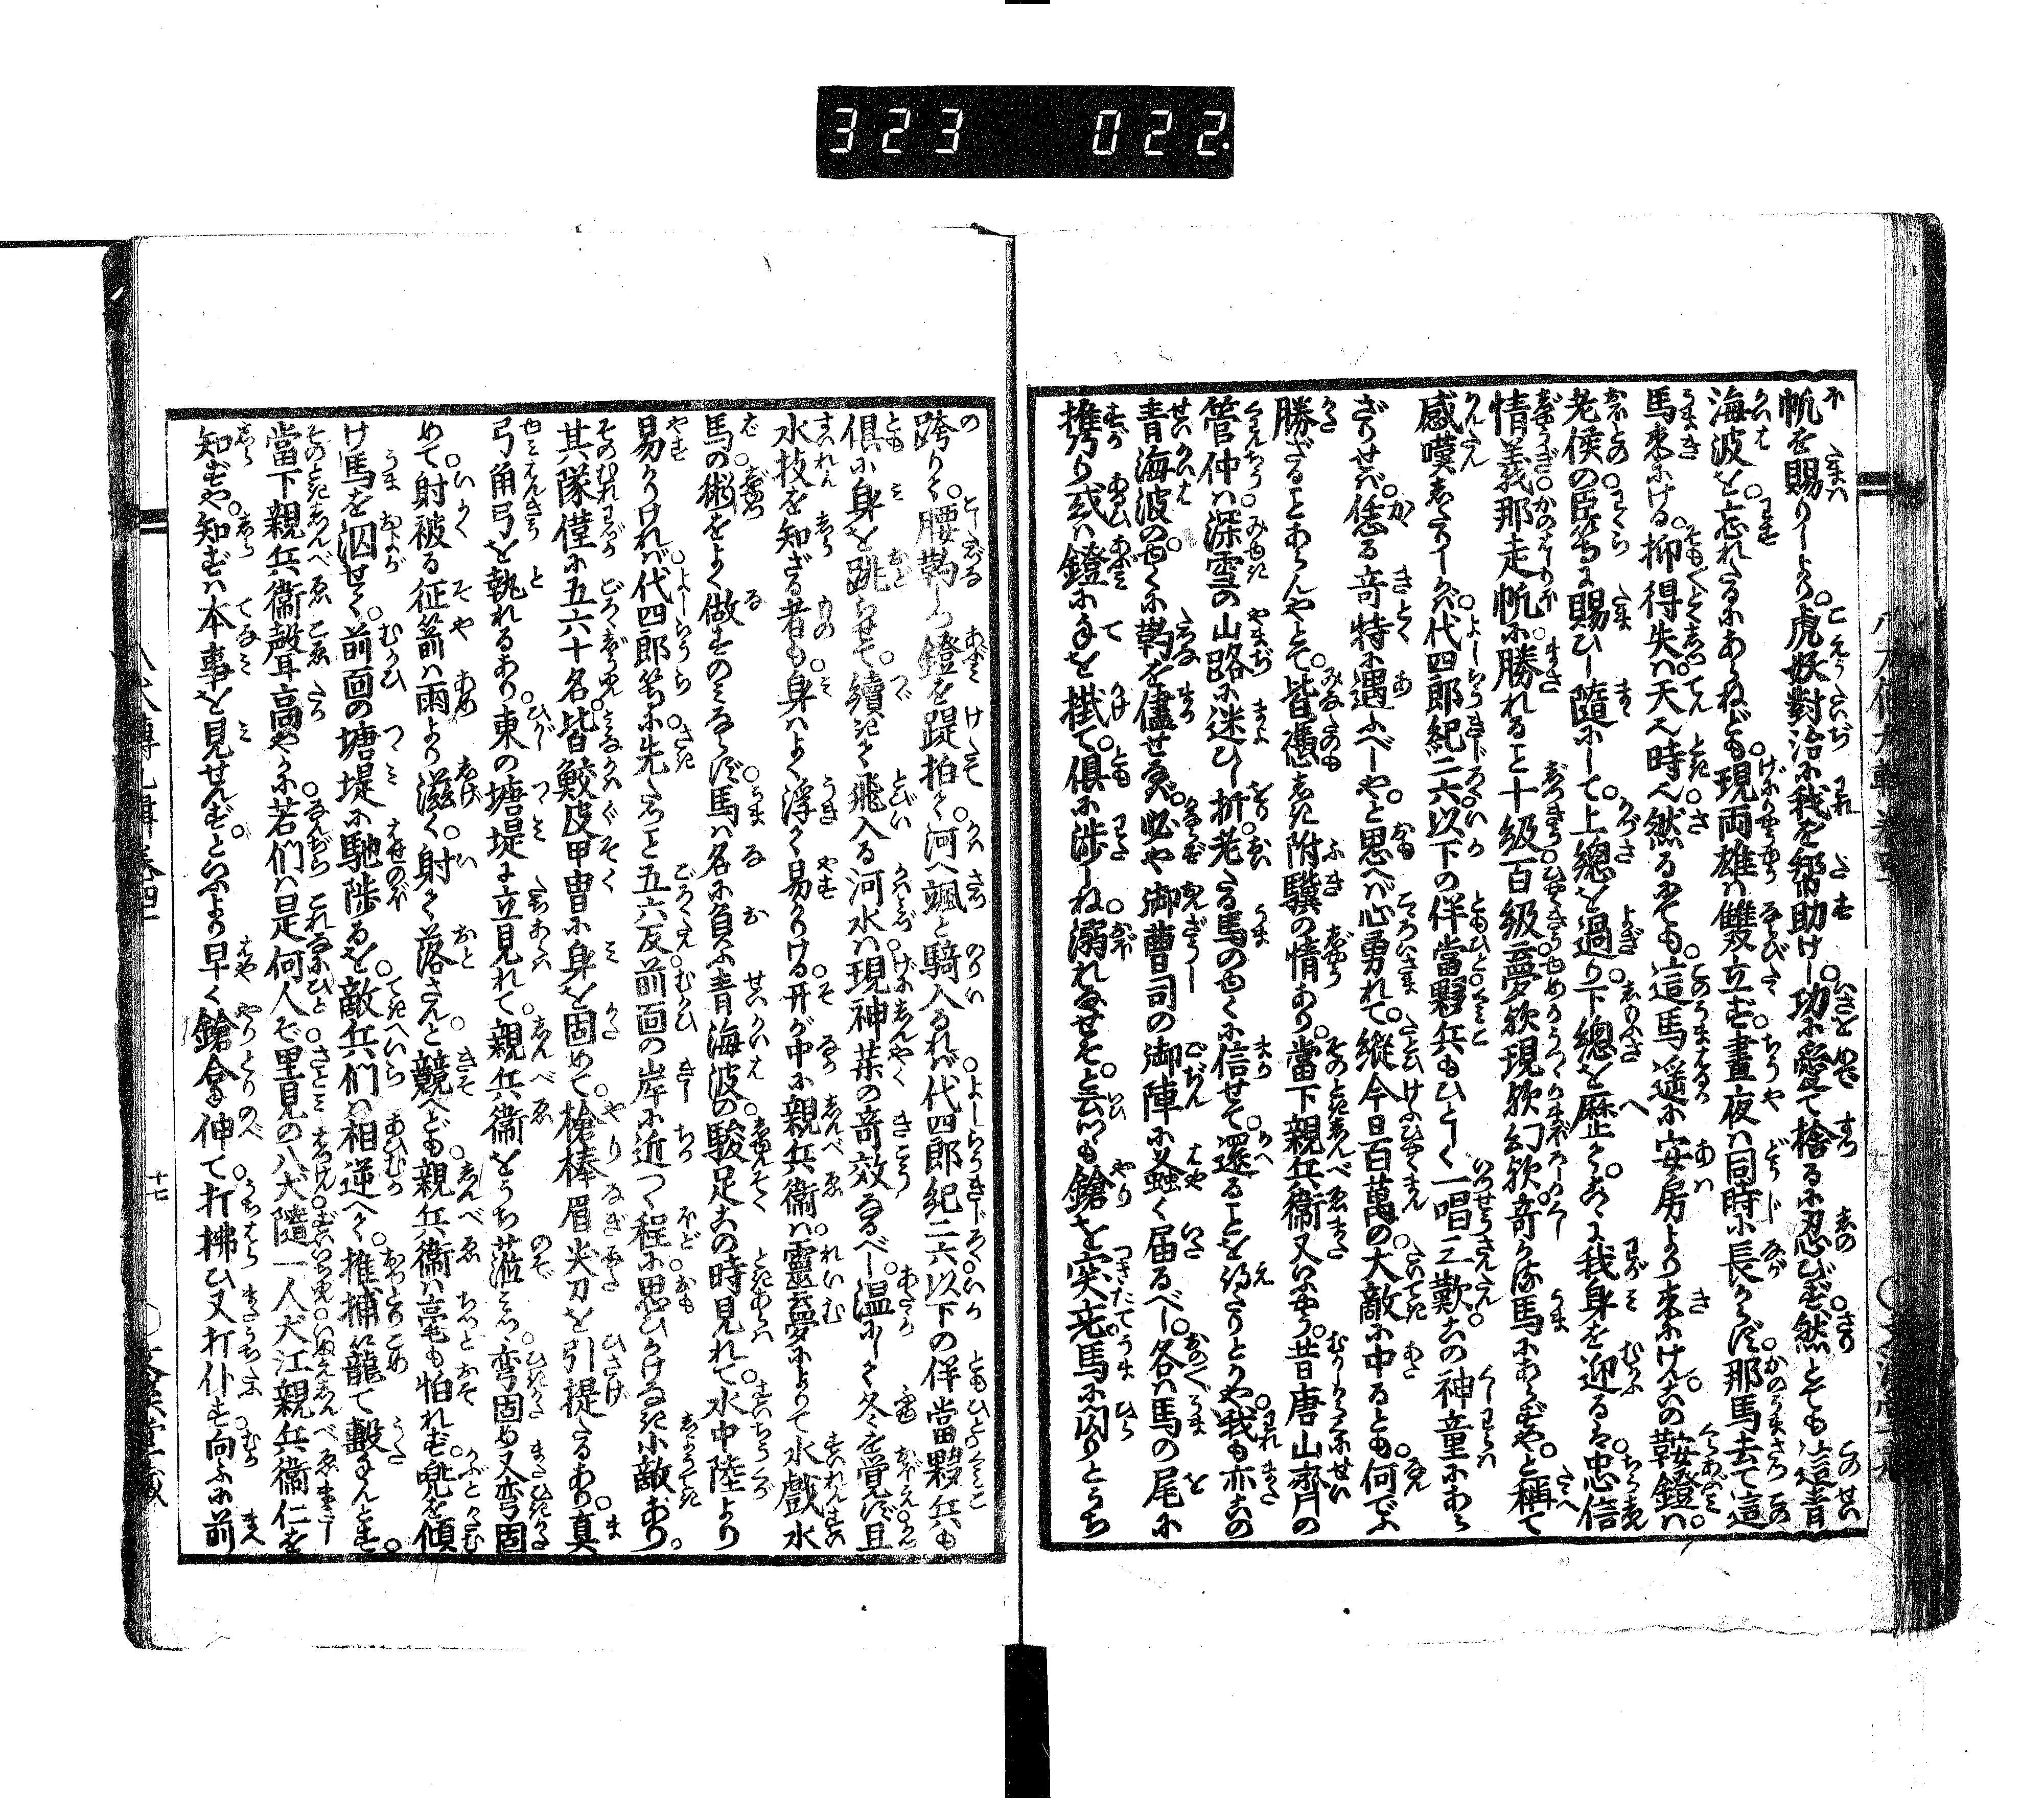 323 022
帆を賜りしより。虎妖對治に我を幇助けし。功に愛て捨るに忍びず。然とても這青
海波を忘れたるにあらねども。現両雄は雙立ず。晝夜は同時に長からず。那馬去て這
馬來にける。抑得失は天也時也。然るにても。這馬遙に安房より來にけん。その鞍鐙は
老侯の臣等に賜ひし隨にして。上總を過り下總を歴て。こゝに我身を迎るは。忠信
情義那走帆に勝れること十級百級。夢欤現欤幻欤。奇らしき馬にあらずや。と稱て
感嘆したりしかば。代四郎紀二六以下の伴當夥兵もひとしく一唱三歎。この神童にあら
ざりせば。恁る奇特に遇ふべしや。と思へば心勇れて。縱今日百萬の大敵に中るとも何でふ
勝ざることあらんやとて。皆憑しき附驥の情あり。當下親兵衞又いふやう。昔唐山齊の
管仲は。深雪の山路に迷ひし折。老たる馬のゆくに信せて還ることを得たりとかや。我も亦この
青海波のゆくに鞆を儘せなば。必や御曹司の御陣に蚤く届るべし。各は馬の尾に
携り或は鐙に手を掛て。俱に渉しね溺れなせそ。と云つも鎗を突立。馬に閃りとうち
跨りて。腰鞆しつ鐙を踶拍て。河へ颯と騎入るれば。代四郎紀二六以下の伴當夥兵も
俱に身を跳らせて。續きて飛入る河水は。現神藥の奇效なるべし。温にして冬を覺ず。且
水技を知ざる者も。身はよく浮く易かりける。开が中に親兵衞は。靈夢によりて水戲水
馬の術をよく做すのみならず。馬は名に負ふ青海波の駿足この時見れて。水中陸より
易かりければ。代四郎等に先だつこと五六反。前面の岸に近つく程に。思ひかけなき小敵あり。
其隊僅に五六十名。皆鮫皮甲冑に身を固めて。槍棒眉尖刀を引提たるあり。真
弓角弓を執れるあり。東の塘堤に立見れて。親兵衞をうち蒞みつゝ。弯固め又弯固
めて射被る征箭は雨より滋く。射て落さんと競へども。親兵衞は毫も怕れず。兜を傾
け馬を泅せて。前面の塘堤に馳陟るを。敵兵們は相逆へて。推捕籠て擊まくす。
當下親兵衞聲高やかに。若們は是何人ぞ。里見の八犬隨一人犬江親兵衞仁を
知ずや。知ずは本事を見せんず。といふより早く鎗合伸て。打拂ひ又打仆す。向ふに前
十七